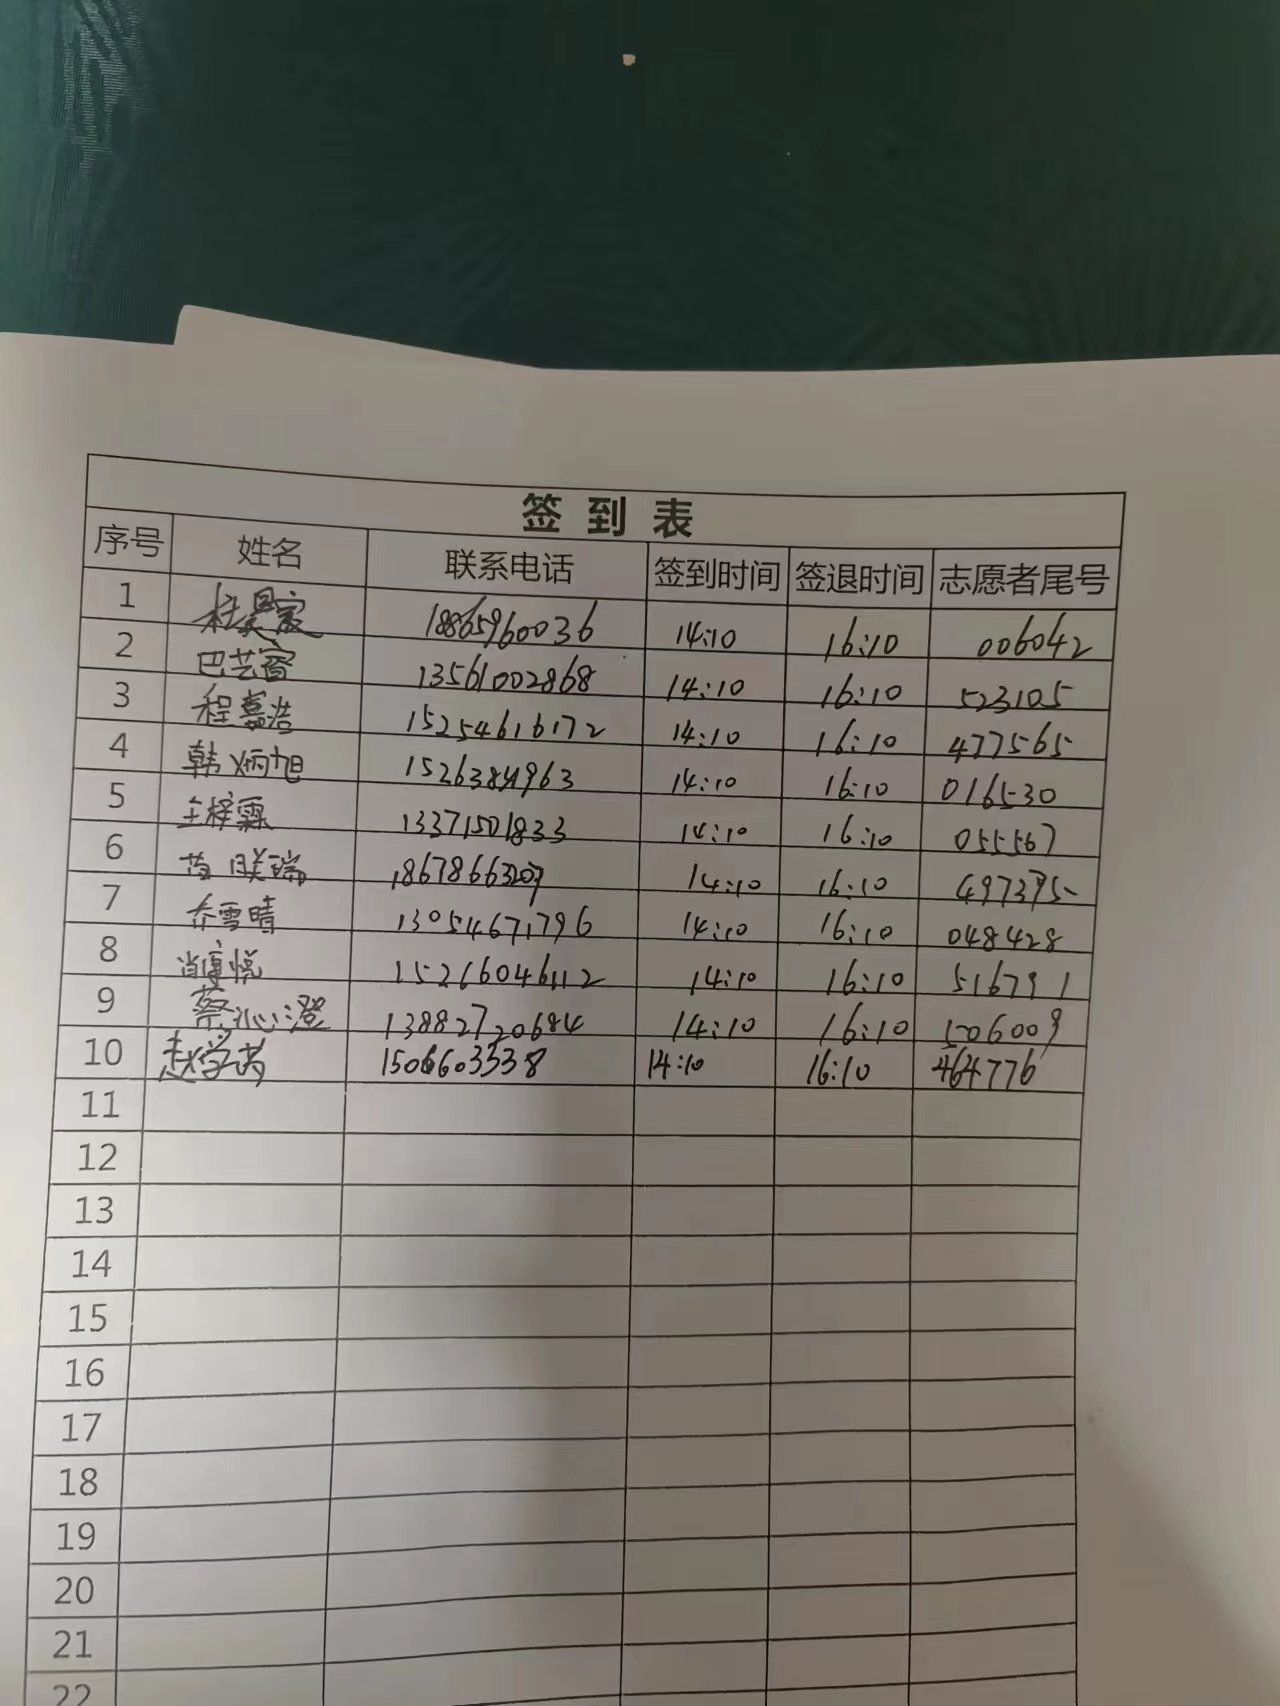 签到表
序号 姓名 联系电话 签到时间 签退时间 志愿者尾号
1 18865960036 14:10 16:10 006042
2 巴艺窗 13561002868 14:10 16:10 523105
3 程嘉浩 15254616172 14:10 16:10 477565
4 韩炳旭 14:10 16:10 016530
5 王梓霖 13371501833 14:10 16:10 055567
6 14:10 16:10 497375
7 乔雪晴 13054671796 14:10 16:10 048428
8 肖惇悦 15216046112 14:10 16:10 516791
9 蔡沁澄 13882720684 14:10 16:10 506009
10 赵学芮 15066033538 14:10 16:10 464776
11
12
13
14
15
16
17
18
19
20
21
22